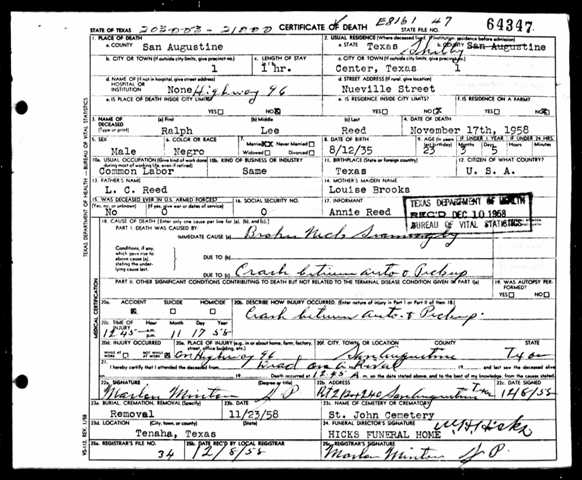 STATE OF TEXAS CERTIFICATE OF DEATH E8161 47 STATE FILE NO. 64347
1. PLACE OF DEATH 2. USUAL RESIDENCE (Where deceased lived. If institution: residence before admission)
a. COUNTY San Augustine a. STATE Texas Shelby b. COUNTY San Augustine
b. CITY OR TOWN (If outside city limits, give precinct no.) c. LENGTH OF STAY c. CITY OR TOWN (If outside city limits, give precinct no.)
1 1 hr. Center, Texas 1
d. NAME OF (If not in hospital, give street address) HOSPITAL OR INSTITUTION d. STREET ADDRESS (If rural, give location)
None Highway 96 Nueville Street
e. IS PLACE OF DEATH INSIDE CITY LIMITS? e. IS RESIDENCE INSIDE CITY LIMITS? f. IS RESIDENCE ON A FARM?
YES NO YES NO YES NO
3. NAME OF DECEASED (Type or print) (a) First (b) Middle (c) Last 4. DATE OF DEATH
Ralph Lee Reed November 17th, 1958
5. SEX 6. COLOR OR RACE 7. Married Never Married Widowed Divorced 8. DATE OF BIRTH 9. AGE
Male Negro 8/12/35 23 3 5
10a. USUAL OCCUPATION (Give kind of work done during most of working life, even if retired) 10b. KIND OF BUSINESS OR INDUSTRY 11. BIRTHPLACE (State or foreign country) 12. CITIZEN OF WHAT COUNTRY?
Common Labor Same Texas U. S. A.
13. FATHER'S NAME 14. MOTHER'S MAIDEN NAME
L. C. Reed Louise Brooks
15. WAS DECEASED EVER IN U.S. ARMED FORCES? 16. SOCIAL SECURITY NO. 17. INFORMANT
(Yes, no, or unknown) (If yes, give war or dates of service)
No 0 0 Annie Reed
TEXAS DEPARTMENT OF HEALTH
REC'D DEC 10 1958
BUREAU OF VITAL STATISTICS
18. CAUSE OF DEATH (Enter only one cause per line for (a), (b), and (c).)
PART I. DEATH WAS CAUSED BY:
IMMEDIATE CAUSE (a) Broken Neck
Conditions, if any, which gave rise to above cause (a) stating the underlying cause last.
DUE TO (b)
DUE TO (c) Crash between auto & Pickup
PART II. OTHER SIGNIFICANT CONDITIONS CONTRIBUTING TO DEATH BUT NOT RELATED TO THE TERMINAL DISEASE CONDITION GIVEN IN PART I (a) 19. WAS AUTOPSY PERFORMED?
YES NO
20a. ACCIDENT SUICIDE HOMICIDE 20b. DESCRIBE HOW INJURY OCCURRED. (Enter nature of injury in Part I or Part II of item 18.)
Crash between Auto & Pickup
20c. TIME OF INJURY Hour Month Day Year
12:45 a.m. p.m. 11 17 58
20d. INJURY OCCURRED 20e. PLACE OF INJURY (e.g. in or about home, farm, factory, street, office building, etc.) 20f. CITY, TOWN, OR LOCATION COUNTY STATE
On Highway 96 San Augustine Texas
21. I hereby certify that I attended the deceased from
Dead on Arrival
Death occurred at 12:45 A m. on the date stated above, and to the best of my knowledge, from the causes stated.
22a. SIGNATURE (Degree or title) 22b. ADDRESS 22c. DATE SIGNED
Marlen Minton J P San Augustine Tex 12/8/58
23a. BURIAL, CREMATION, REMOVAL (Specify) 23b. DATE 23c. NAME OF CEMETERY OR CREMATORY
Removal 11/23/58 St. John Cemetery
23d. LOCATION (City, town, or county) (State) 24. FUNERAL DIRECTOR'S SIGNATURE
Tenaha, Texas HICKS FUNERAL HOME W H Hicks
25a. REGISTRAR'S FILE NO. 25b. DATE REC'D BY LOCAL REGISTRAR 25c. REGISTRAR'S SIGNATURE
34 12/8/58 Marlen Minton J P.
TEXAS DEPARTMENT OF HEALTH — BUREAU OF VITAL STATISTICS
MEDICAL CERTIFICATION